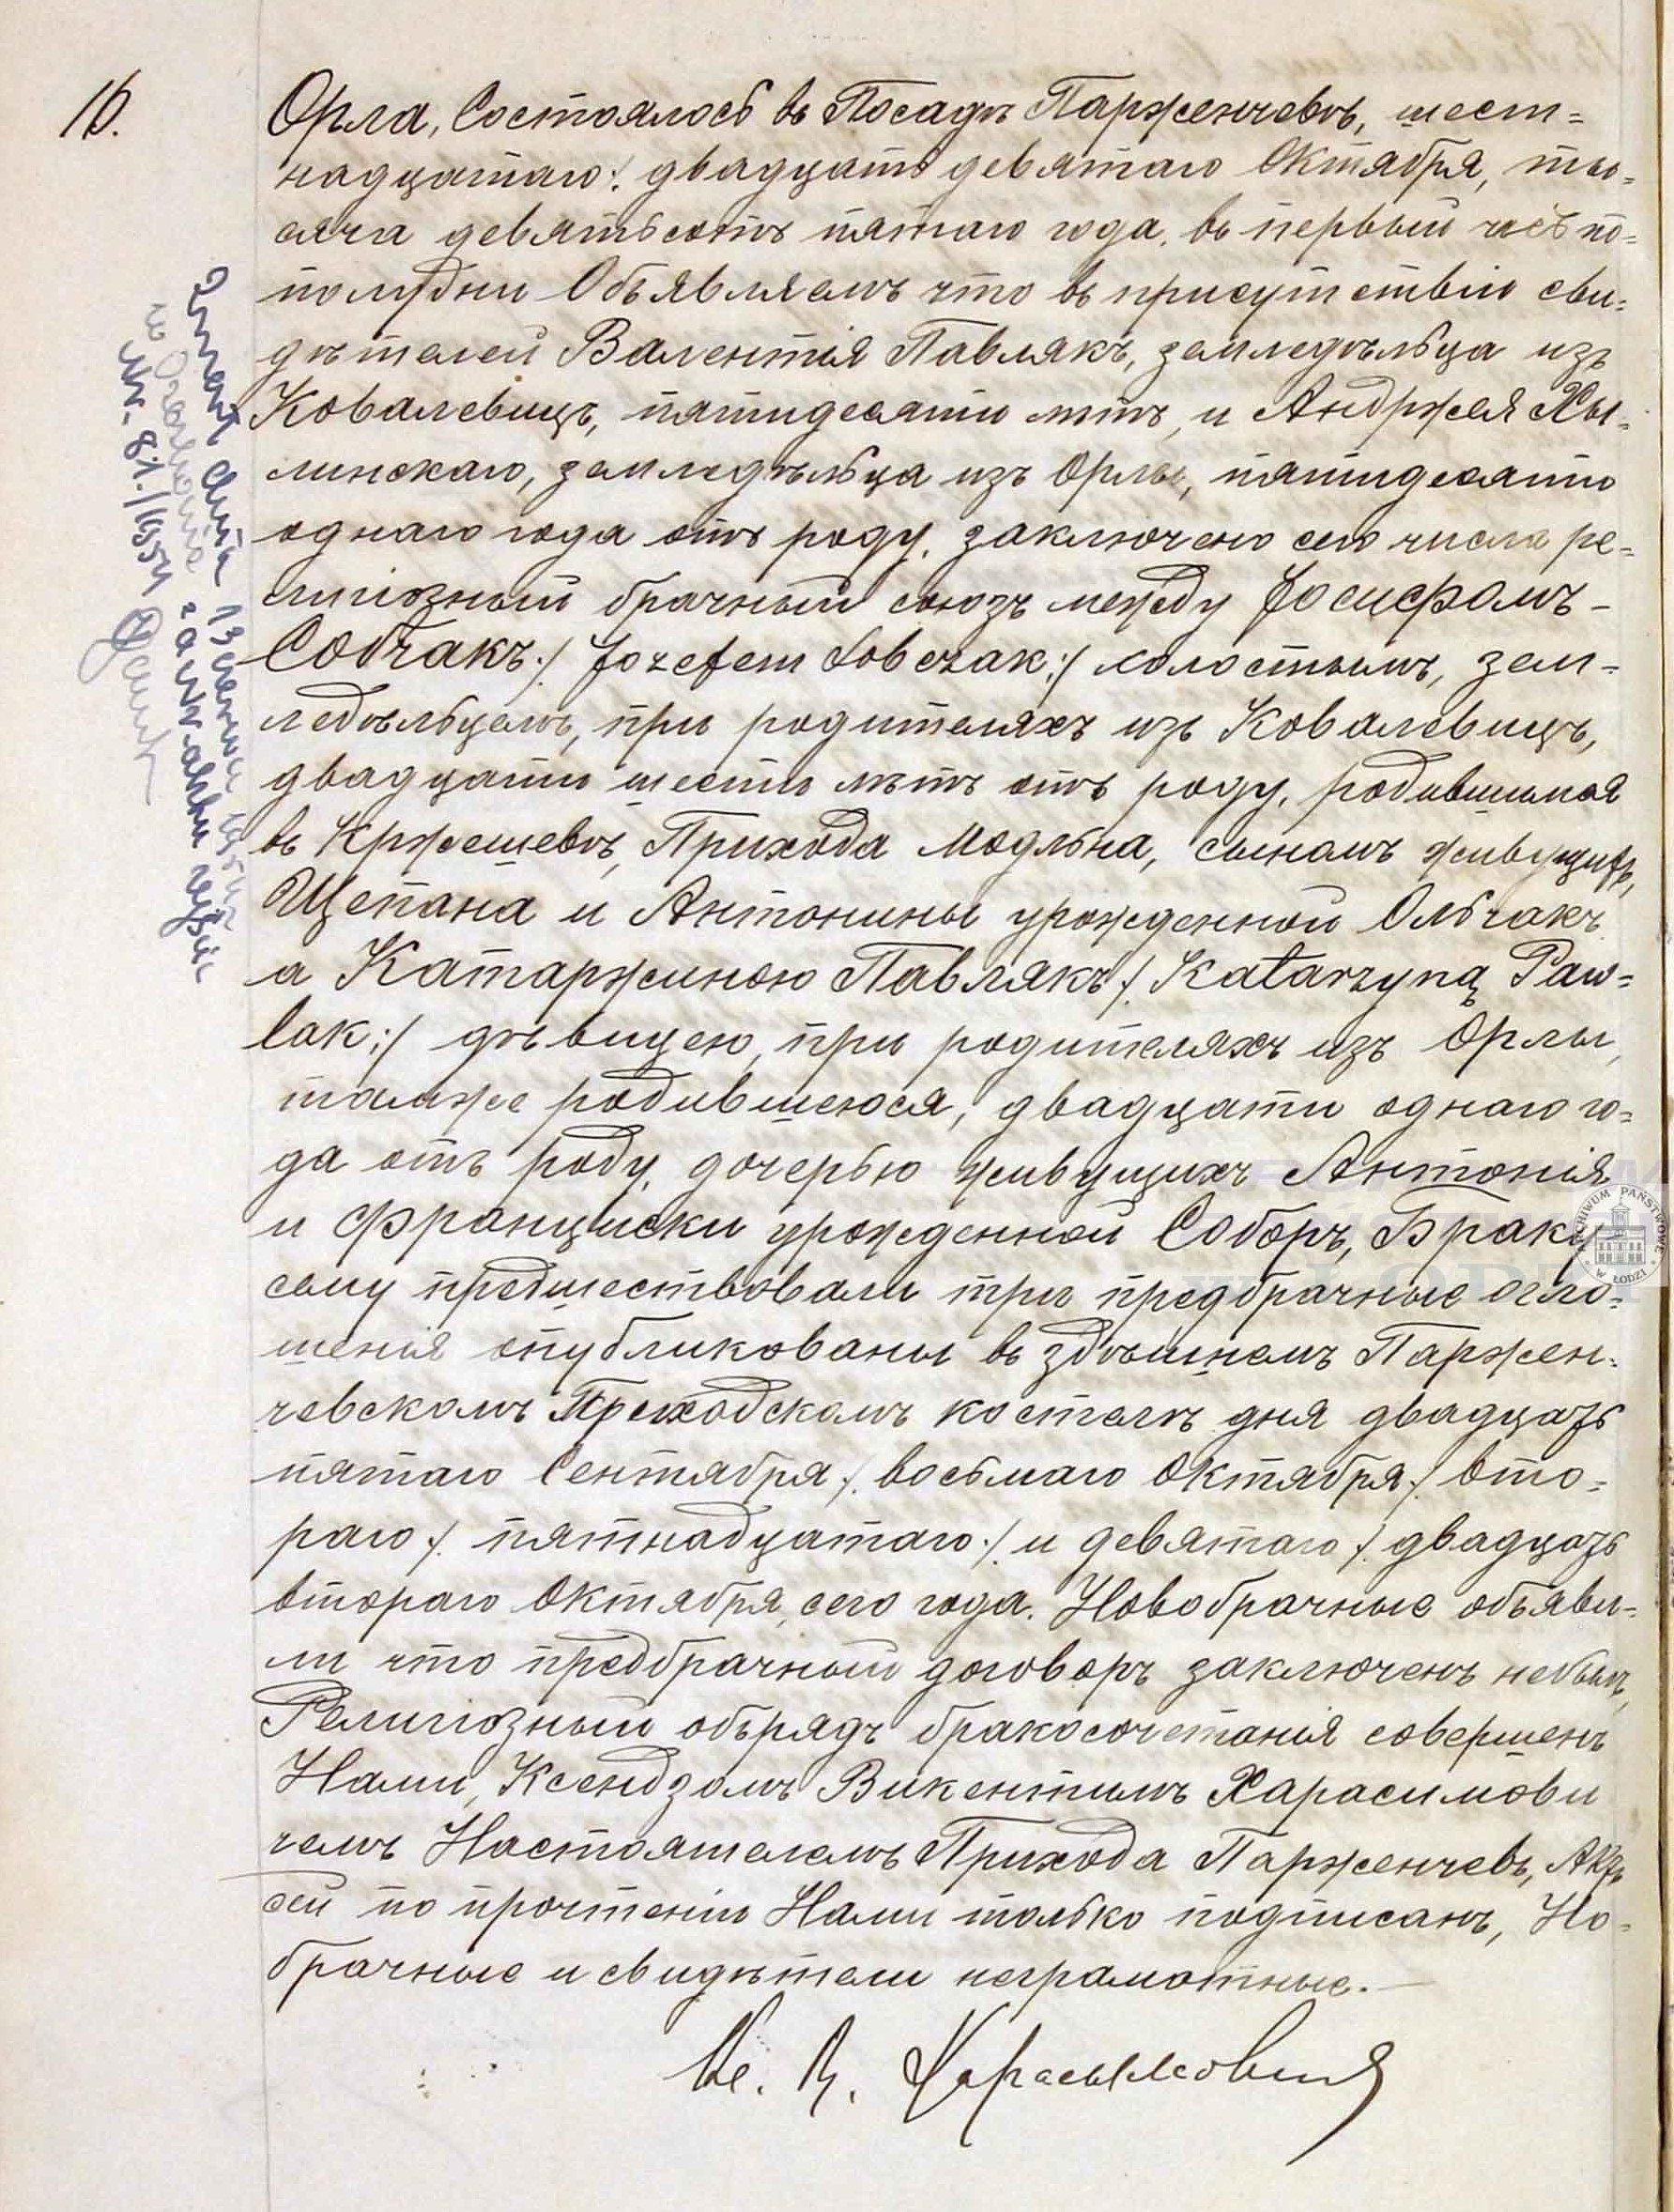 16.
Орла, Состоялось въ Посадѣ Парженчевѣ, шест=
надцатаго :/ двадцать девятаго Октября, ты=
сяча девятьсотъ пятаго года, въ первый час по=
полудни Объявляемъ что въ присутствіи сви=
дѣтелей Валентія Павлякъ, земледѣльца изъ
Ковалевицъ, пятидесяти лѣтъ, и Анджея Хы=
линскаго, земледѣльца изъ Орлы, пятидесяти
однаго года отъ роду, заключено сего числа ре=
лигіозный брачный союзъ между Іосифомъ-
Собчакъ :/ Józefem Sobczak :/ холостымъ, зем=
ледѣльцемъ, при родителяхъ изъ Ковалевицъ,
двадцати шести лѣтъ отъ роду, родившимся
въ Кржешевѣ, Прихода Модльна, сыномъ живущихъ,
Щепана и Антонины урожденной Ольчакъ
а Катаржиною Павлякъ :/ Katarzyną Paw=
lak :/ дѣвицею, при родителяхъ изъ Орлы,
тамже родившеюся, двадцати однаго го=
да отъ роду, дочерью живущихъ Антонія
и Францишки урожденной Соборъ, Браку
сему предшествовали три предбрачные огло=
шенія опубликованы въ здѣшнемъ Паржен=
чевскомъ Приходскомъ костелѣ дня двадцать
пятаго Сентября :/ восьмаго Октября :/ вто=
раго :/ пятнадцатаго :/ и девятаго :/ двадцать
втораго Октября, сего года. Новобрачные объяви=
ли что предбрачный договоръ заключенъ небылъ,
Религіозный обърядъ бракосочетанія совершенъ
Нами, Ксендзомъ Викентымъ Харасимови
чемъ Настоятелемъ Прихода Парженчевъ, Актъ
сей по прочтеніи Нами только подписанъ, Но=
брачные и свидѣтели неграмотные. —
Кс. В. Харасымовичъ
Nr. 81./1954
ARCHIWUM PAŃSTWOWE W ŁODZI